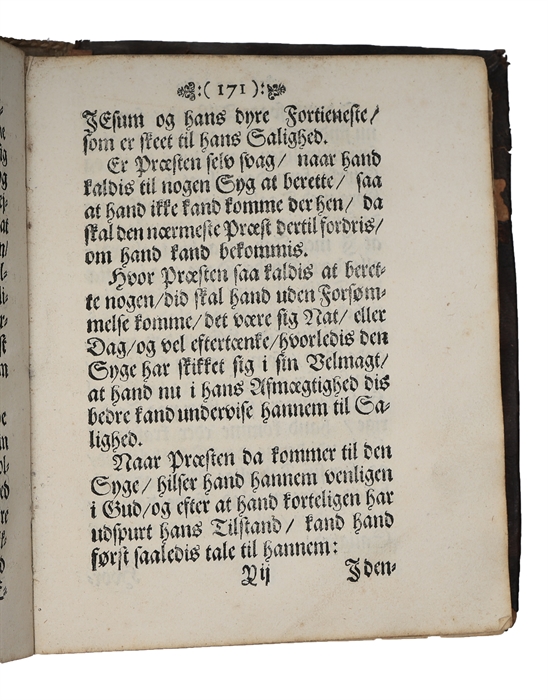 :( 171 ):
JEsum og hans dyre Fortieneste/
som er skeet til hans Salighed.
Er Præsten selv svag/ naar hand
kaldis til nogen Syg at berette/ saa
at hand ikke kand komme der hen/ da
skal den nærmeste Præst dertil fordris/
om hand kand bekommis.
Hvor Præsten saa kaldis at beret-
te nogen/did skal hand uden Forsøm-
melse komme/det være sig Nat/ eller
Dag/og vel eftertænke/hvorledis den
Syge har skikket sig i sin Velmagt/
at hand nu i hans Afmægtighed dis
bedre kand undervise hannem til Sa-
lighed.
Naar Præsten da kommer til den
Syge/ hilser hand hannem venligen
i Gud/og efter at hand korteligen har
udspurt hans Tilstand/ kand hand
først saaledis tale til hannem:
Jden-